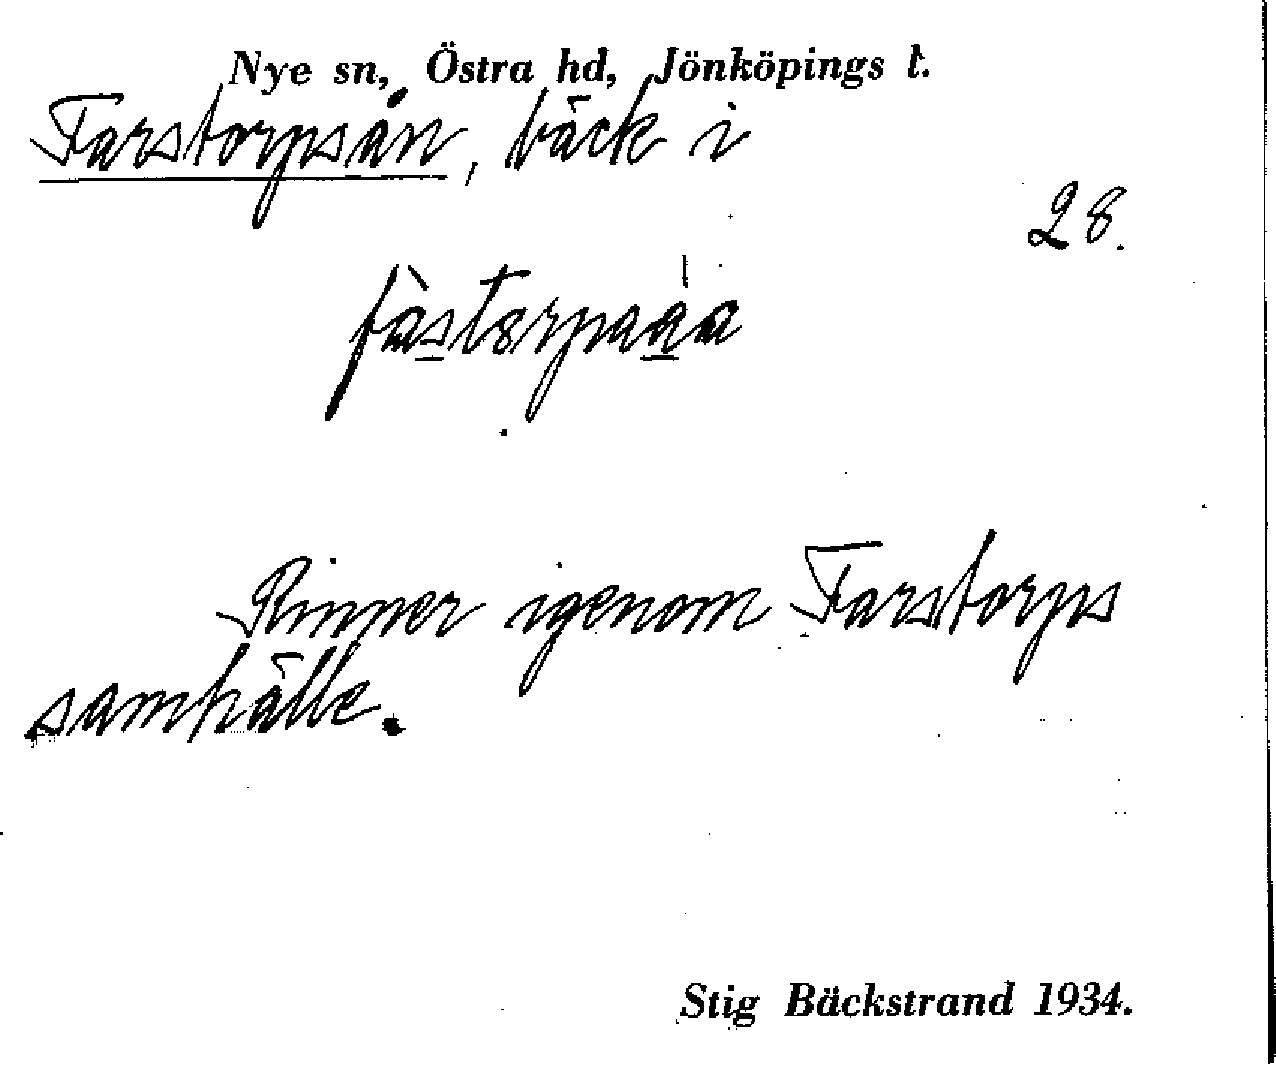 Nye sn, Östra hd, Jönköpings l.
Farstorpsån, bäck i
28.
Rinner igenom Farstorps
samhälle.
Stig Bäckstrand 1934.